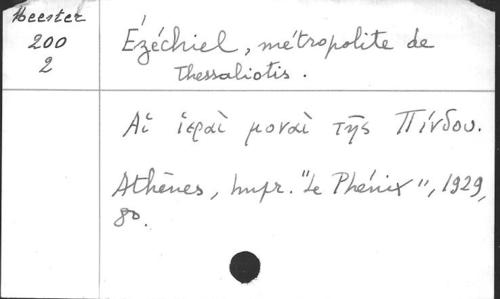 Meester
200
2
Ézéchiel, métropolite de
Thessaliotis.
Αἱ ἱεραὶ μοναὶ τῆς Πίνδου.
Athènes, Impr. "Le Phénix", 1929,
8º.